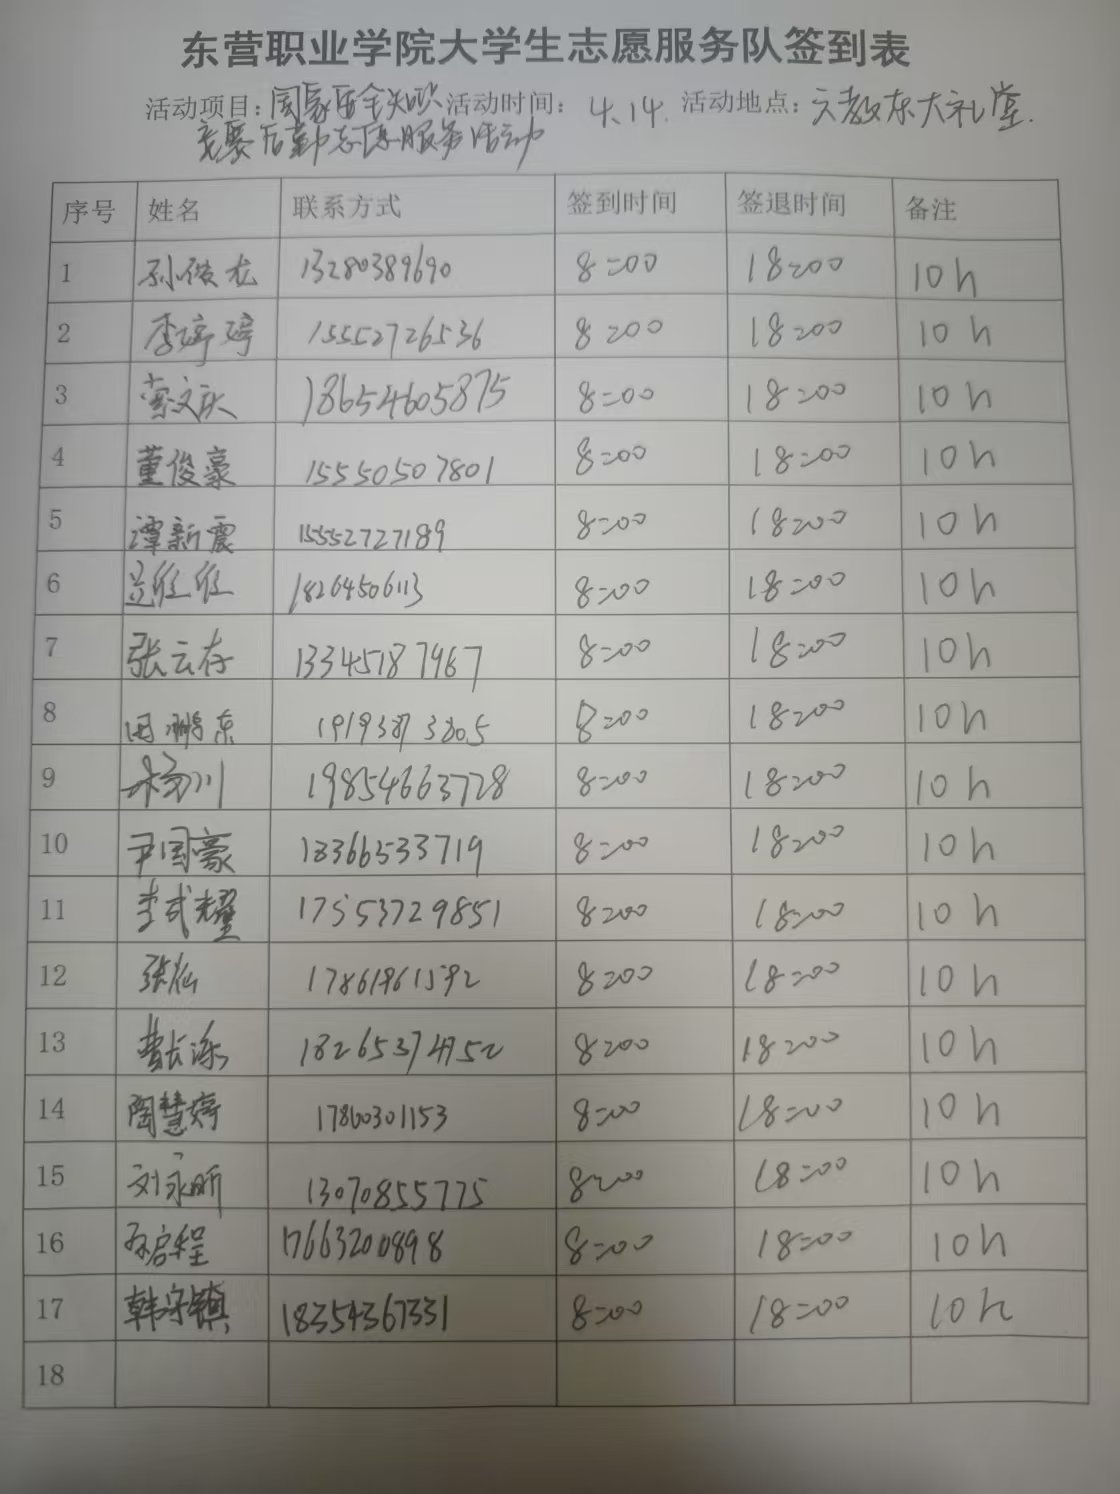 东营职业学院大学生志愿服务队签到表
活动项目：国家安全知识 活动时间： 4.14. 活动地点：六教东大礼堂.
竞赛后勤志愿服务活动
序号 姓名 联系方式 签到时间 签退时间 备注
1 孙俊龙 13280389690 8:00 18:00 10h
2 李婷婷 15552726536 8:00 18:00 10h
3 18654605875 8:00 18:00 10h
4 董俊豪 15550507801 8:00 18:00 10h
5 谭新震 15552727189 8:00 18:00 10h
6 18264506113 8:00 18:00 10h
7 张云存 13345187967 8:00 18:00 10h
8 田鹏东 8:00 18:00 10h
9 杨川 19854663728 8:00 18:00 10h
10 尹国豪 18366533719 8:00 18:00 10h
11 李武耀 17553729851 8:00 18:00 10h
12 8:00 18:00 10h
13 8:00 18:00 10h
14 陶慧婷 17860301153 8:00 18:00 10h
15 刘永昕 13070855775 8:00 18:00 10h
16 孙启程 17663200898 8:00 18:00 10h
17 韩守镇 18354367331 8:00 18:00 10h
18